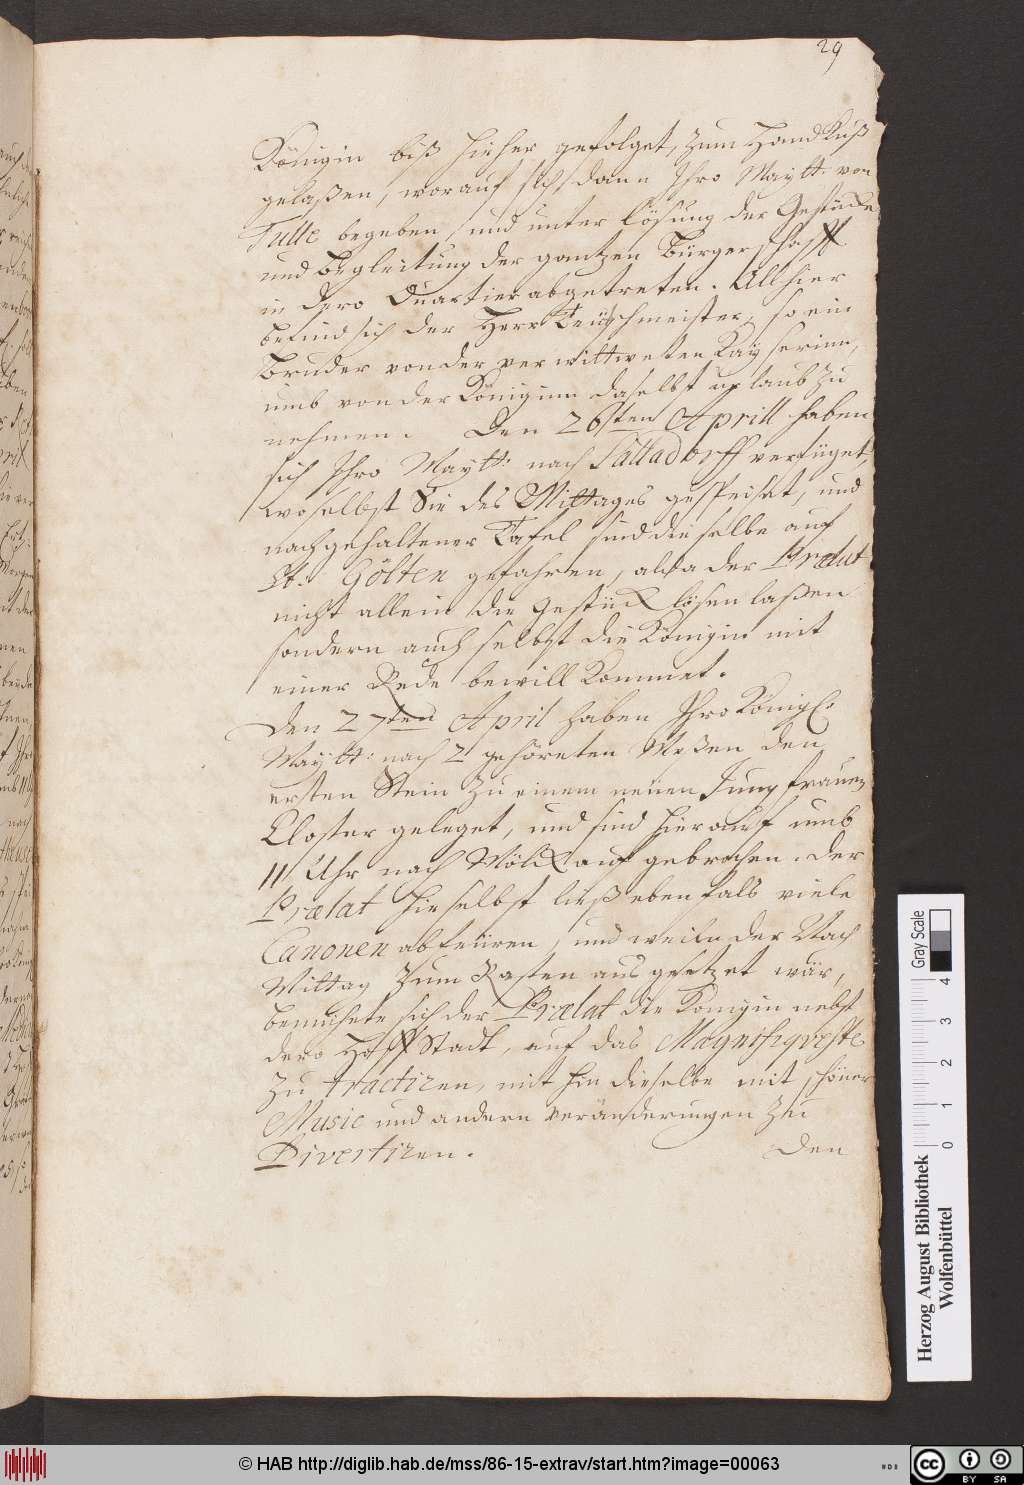 29
Königin biß hieher gefolget, zum Hand Kuß
gelaßen, worauf sich dann Ihro Maytt: von
Tulle begeben, und unter lösung der Gestücke
und begleitung der gantzen Bürgerschafft
in dero Quartier abgetreten. Allhier
befind sich der Herr Teuschmeister, so ein
Bruder von der verwittweten Kayserinn,
umb von der Königinn daselbst uhrlaub zu
nehmen. Den 26sten Aprill haben
sich Ihro Maytt: nach Sattadorff verfüget,
woselbst Sie des Mittages gespeiset, und
nach gehaltener Tafel sind dieselbe auf
St: Gölten gefahren, alda der Prælat
nicht allein die Gestück lösen laßen
sondern auch selbst die Königin mit
einer Rede bewillkommet.
Den 27ten April haben Ihro Königl:
Maytt: nach 2 gehöreten Meßen den
ersten Stein zu einem neuen Jungfrauen
Closter geleget, und sind hierauf umb
11 Uhr nach Mölck aufgebrochen. Der
Prælat hieselbst ließ ebenfals viele
Canonen abfeüren, und weiln der Nach
Mittag zum Rasten ausgesetzet wär,
bemühete sich der Prælat die Königin nebst
dero Hoff Stadt, auf das Magnifiqveste
zu tractiren, mithin dieselbe mit schöner
Music und andern veränderungen zu
Divertiren.
Den
Gray Scale
0 1 2 3 4
Herzog August Bibliothek
Wolfenbüttel
© HAB http://diglib.hab.de/mss/86-15-extrav/start.htm?image=00063
cc BY SA